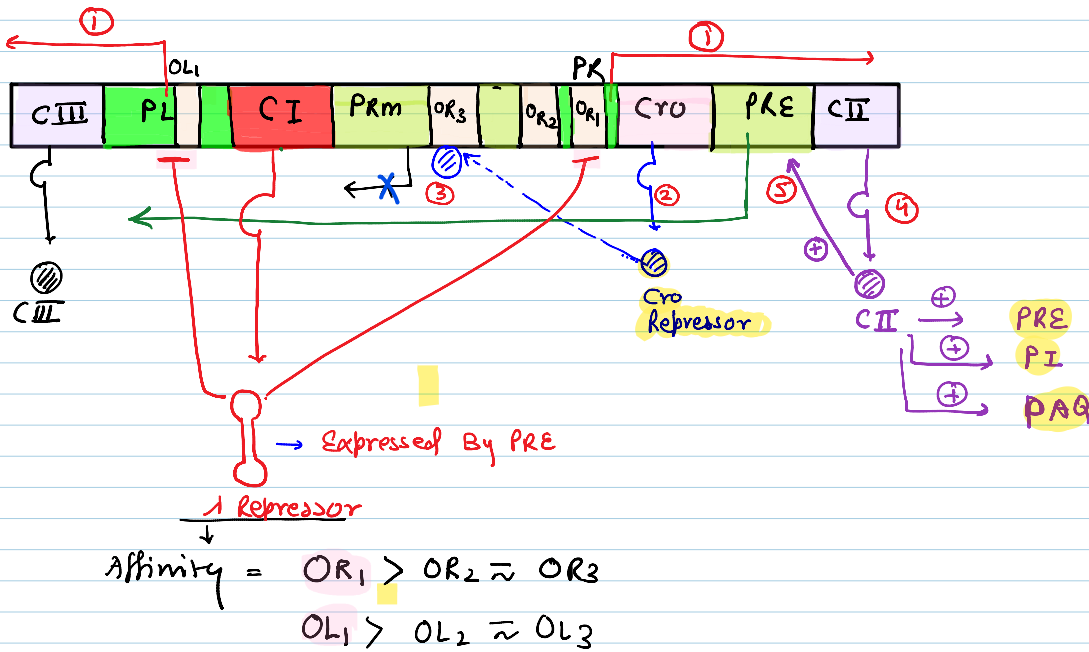 ① ①
OL1 PR
CIII PL CI PRm OR3 OR2 OR1 Cro PRE CII
③ ② ⑤ ④
CIII
Cro
Repressor
CII ⊕ → PRE
⊕ → PI
⊕ → PAQ
→ Expressed By PRE
λ Repressor
Affinity = OR1 > OR2 ≈ OR3
OL1 > OL2 ≈ OL3